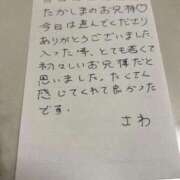 たかしまのお兄様♡
今日は選んでくださり
ありがとうございました
入った時、とても若くて
初々しいお兄様だと
思いました。たくさん
感じてくれて良かった
です。
さわ